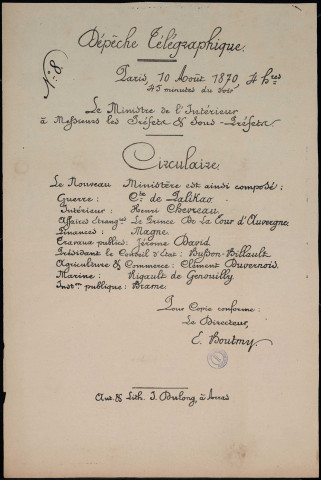 Dépêche Télégraphique.
N° 8.
Paris, 10 Août 1870, 4 hres
45 minutes du soir
Le Ministre de l'Intérieur
à Messieurs les Préfets & Sous-Préfets
Circulaire.
Le Nouveau Ministère est ainsi composé :
Guerre : Cte de Palikao.
Intérieur : Henri Chevreau
Affaires Étrangres Le Prince De La Tour d'Auvergne
Finances : Magne.
Travaux publics : Jérôme David
Présidant le Conseil d'État : Busson-Billault
Agriculture & Commerce : Clément Duvernois.
Marine : Rigault de Genouilly
Inston publique : Brame.
Pour Copie conforme :
Le Directeur,
E. Boutmy.
Aut. & Lith. J. Dulong, à Arras